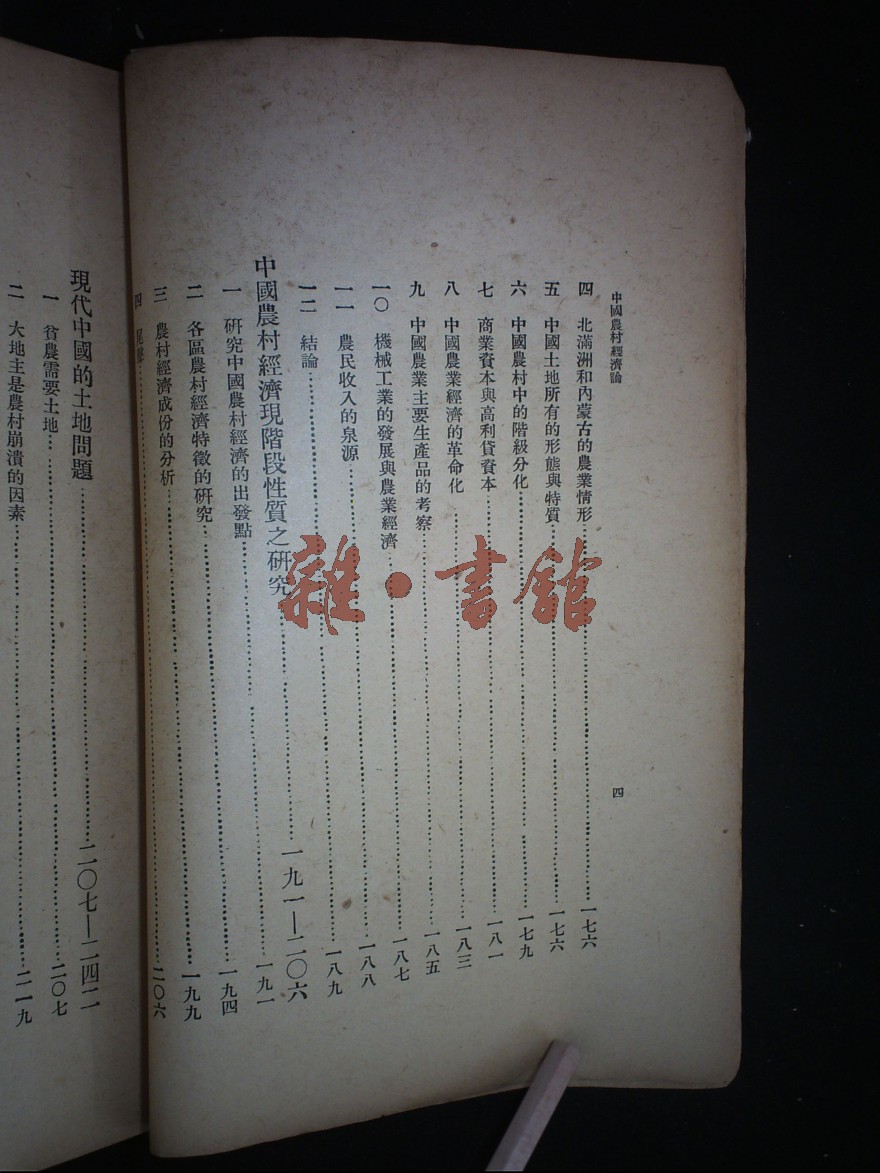 中國農村經濟論 四
四 北滿洲和內蒙古的農業情形……一七六
五 中國土地所有的形態與特質……一七六
六 中國農村中的階級分化……一七九
七 商業資本與高利貸資本……一八一
八 中國農業經濟的革命化……一八三
九 中國農業主要生產品的考察……一八五
一〇 機械工業的發展與農業經濟……一八七
一一 農民收入的泉源……一八八
一二 結論……一八九
中國農村經濟現階段性質之研究……一九一—二〇六
一 研究中國農村經濟的出發點……一九一
二 各區農村經濟特徵的研究……一九四
三 農村經濟成份的分析……一九九
四……二〇六
現代中國的土地問題……二〇七—二四二
一 貧農需要土地……二〇七
二 大地主是農村崩潰的因素……二一九
雜·書館